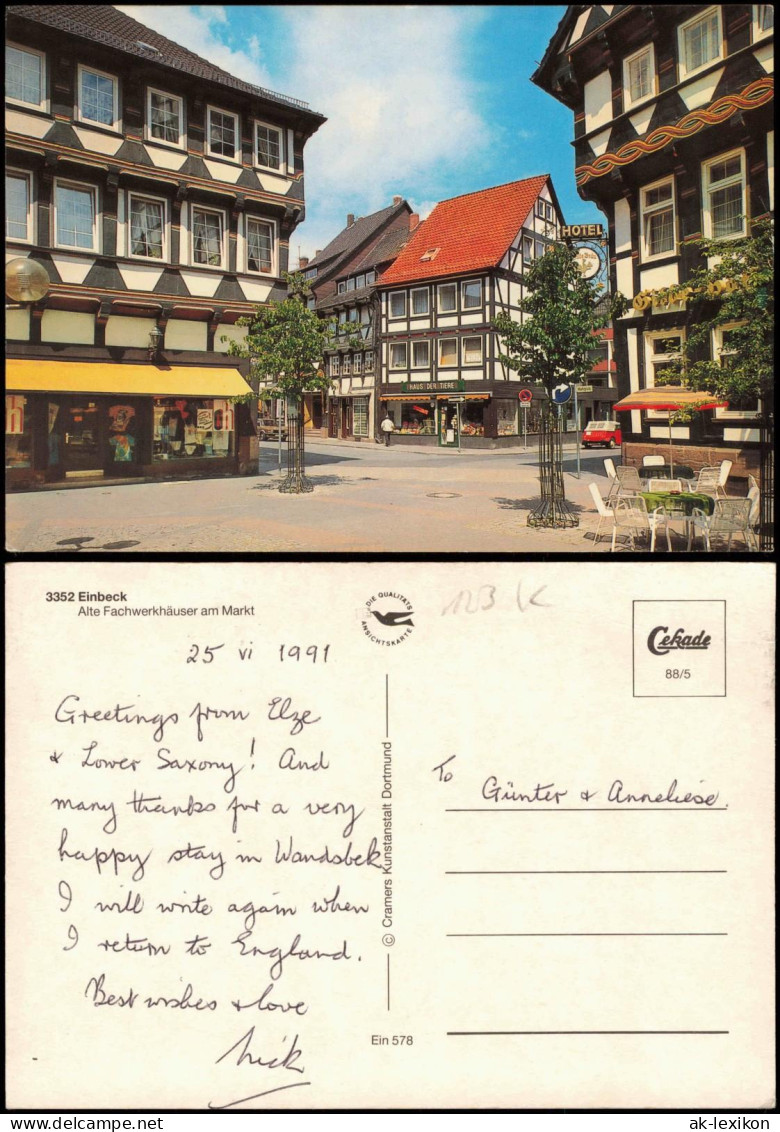 HOTEL
HAUS DER TIERE
ch
3352 Einbeck
Alte Fachwerkhäuser am Markt
DIE QUALITÄTS
ANSICHTSKARTE
123 K
Cekade
88/5
25 vi 1991
Greetings from Elze
& Lower Saxony! And
many thanks for a very
happy stay in Wandsbek
I will write again when
I return to England.
Best wishes & love
Nick
© Cramers Kunstanstalt Dortmund
Ein 578
To Günter & Anneliese.
AK-Ansichtskarten.de
ak-lexikon